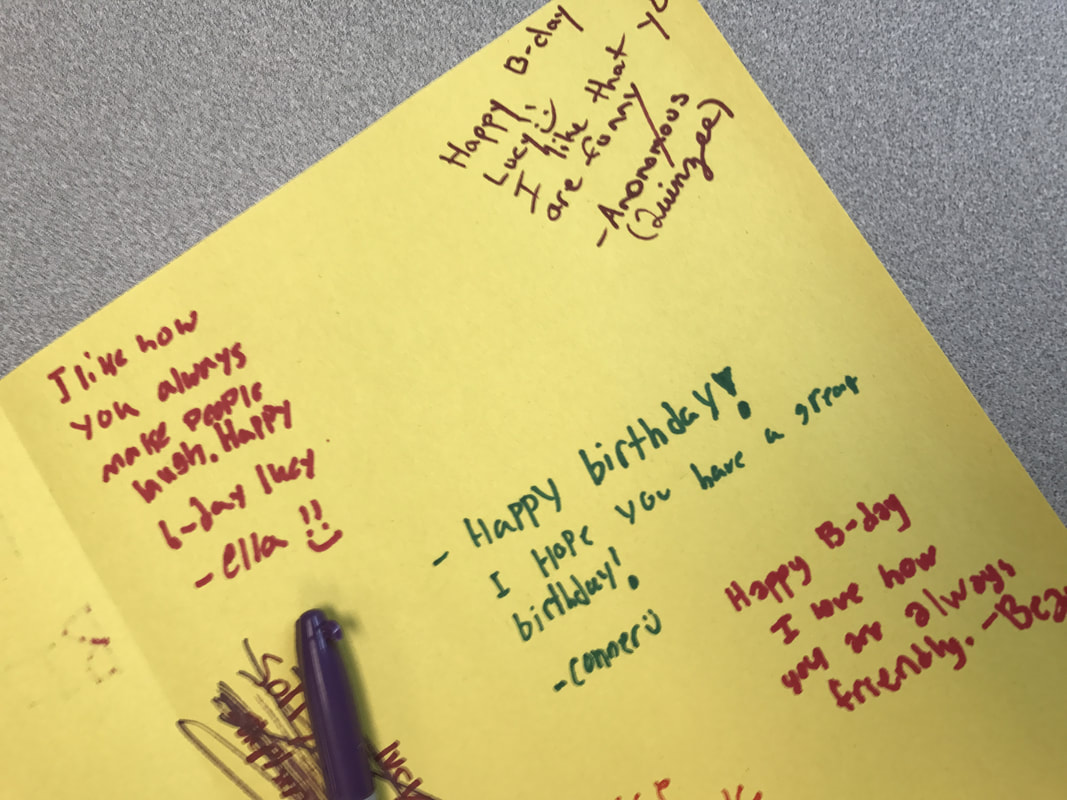 Happy B-day
Lucy! :)
I like that
are funny
- Anonomous
(Quinzee)
I like how
you always
make people
laugh. Happy
b-day lucy
- ella !! :)
- Happy birthday!
I Hope you have a great
birthday!
- conner :)
Happy B-day
I love how
you are always
friendly. -